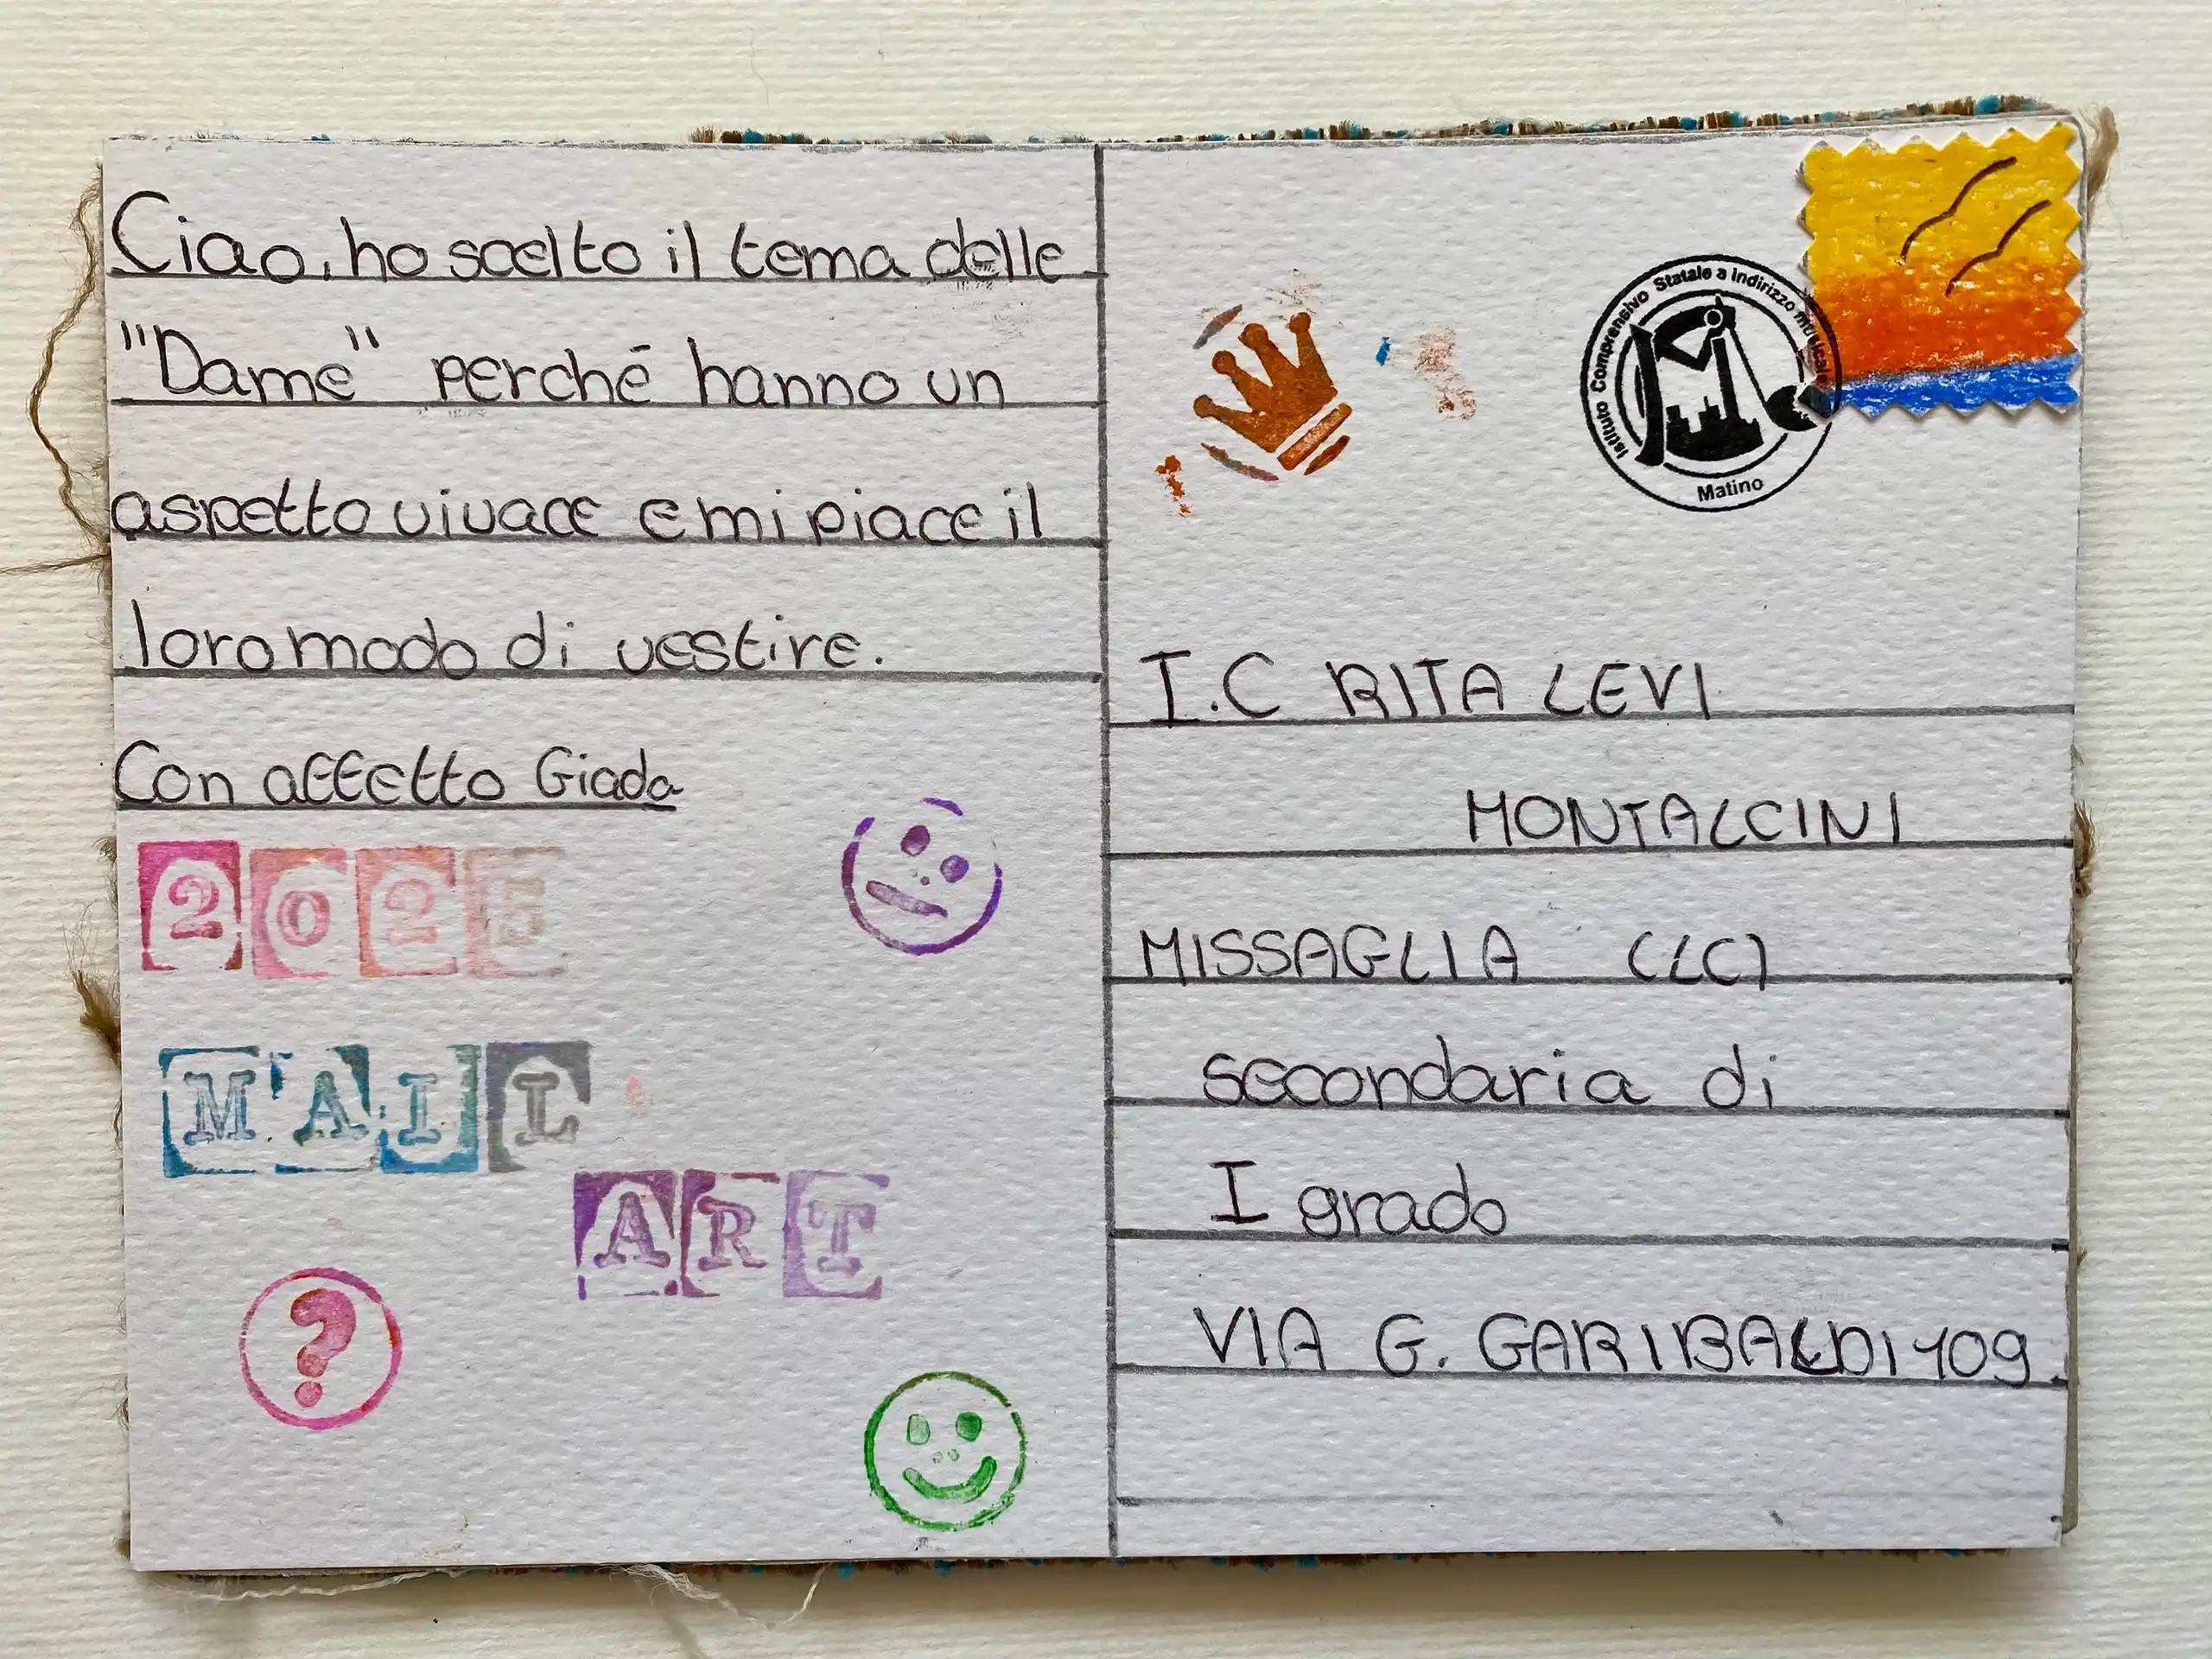 Ciao, ho scelto il tema delle
"Dame" perché hanno un
aspetto vivace e mi piace il
loro modo di vestire.
Con affetto Giada
2025
MAIL
ART
?
Istituto Comprensivo Statale a Indirizzo musicale
Matino
I.C RITA LEVI
MONTALCINI
MISSAGLIA (LC)
secondaria di
I grado
VIA G. GARIBALDI 109